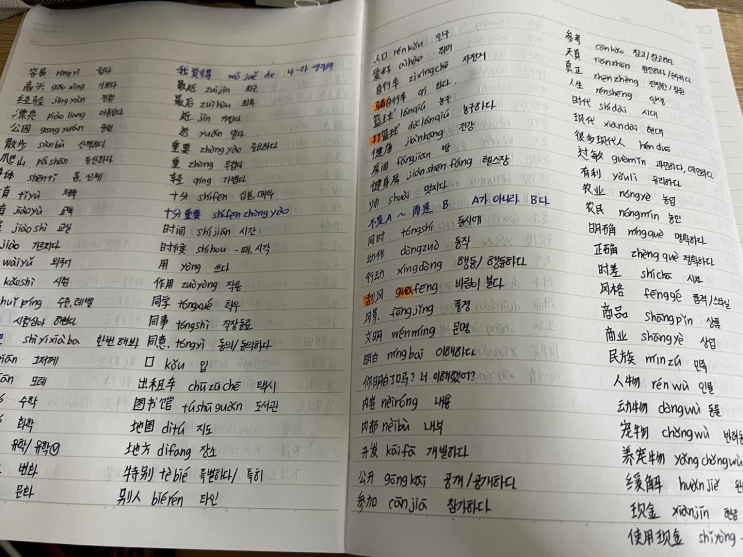 容易 róngyì 쉽다
高兴 gāo xìng 기쁘다
经验 jīngyàn 경험
漂亮 piào liang 아름답다
公园 gōng yuán 공원
散步 sàn bù 산책하다
爬山 páshān 등산하다
体 shēntǐ 몸, 신체
育 tǐyù 체육
育 jiàoyù 교육
jiào shì 교실
jiāo 가르치다
wàiyǔ 외국어
kǎoshì 시험
huǐ píng 수준, 레벨
shì yí xià ba 한번 해봐
그저께
모레
수학
화학
유학/유학
변화
문화
我觉得 wǒ jué de 나-라 생각해
最近 zuìjìn 최근
最后 zuìhòu 최후
近 jìn 가깝다
远 yuǎn 멀다
重要 zhòng yào 중요하다
重 zhòng 무겁다
轻 qīng 가볍다
十分 shífēn 십분, 매우
十分重要 shífēn zhòng yào
时间 shíjiān 시간
时候 shíhou -때, 시각
用 yòng 쓰다
作用 zuòyòng 작용
同学 tóngxué 학우
同事 tóngshì 직장동료
同意 tóngyì 동의/동의하다
口 kǒu 입
出租车 chū zū chē 택시
图书馆 túshūguǎn 도서관
地图 dìtú 지도
地方 dìfang 장소
特别 tèbié 특별하다/특히
别人 biérén 타인
人口 rén kǒu 인구
爱好 àihào 취미
自行车 zìxíngchē 자전거
骑自行车 qí 타다.
篮球 lánqiú 농구
打篮球 dǎ lánqiú 농구하다
健康 jiànkāng 건강
房间 fángjiān 방
健身房 jiànshēn fáng 헬스장
帅 shuài 멋지다
不是A~ 而是 B A가 아니라 B다
同时 tóngshí 동시에
动作 dòngzuò 동작
行动 xíngdòng 행동/행동하다
刮风 guā fēng 바람이 불다
风景 fēngjǐng 풍경
文明 wénmíng 문명
明白 míngbai 이해하다
你明白了吗? 너 이해했어?
内容 nèiróng 내용
内部 nèibù 내부
开发 kāifā 개발하다
公开 gōngkāi 공개/공개하다
参加 cānjiā 참가하다
参考 cānkǎo 참고/참고하다
天真 tiānzhēn
真正 zhēnzhèng
人生 rénshēng 인생
时代 shídài 시대
现代 xiàndài 현대
很多现代人 hěn duō
过敏 guòmǐn
有利 yǒulì 유리하다
农业 nóngyè 농업
农民 nóngmín 농민
明确 míngquè 명확하다
正确 zhèngquè 정확하다
时差 shíchā 시차
风格 fēnggé 품격/스타일
商品 shāngpǐn 상품
商业 shāngyè 상업
民族 mínzú 민족
人物 rénwù 인물
动物 dòngwù 동물
宠物 chǒngwù 반려동
养宠物 yǎng chǒngwù
缓解 huǎnjiě
现金 xiànjīn 현금
使用现金 shǐyòng